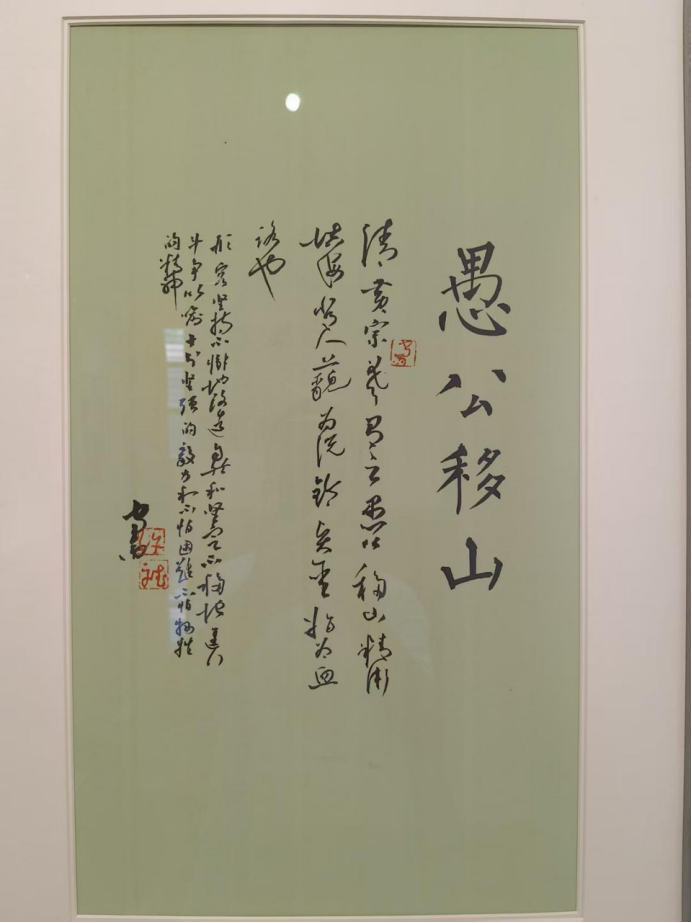 愚公移山
清黄宗羲愚公移山精卫
填海常人藐为说铃贤圣指为血
路也
形容坚持不懈地改造自然和坚定不移地进行
斗争比喻坚强的毅力和不怕困难不怕牺牲
的精神